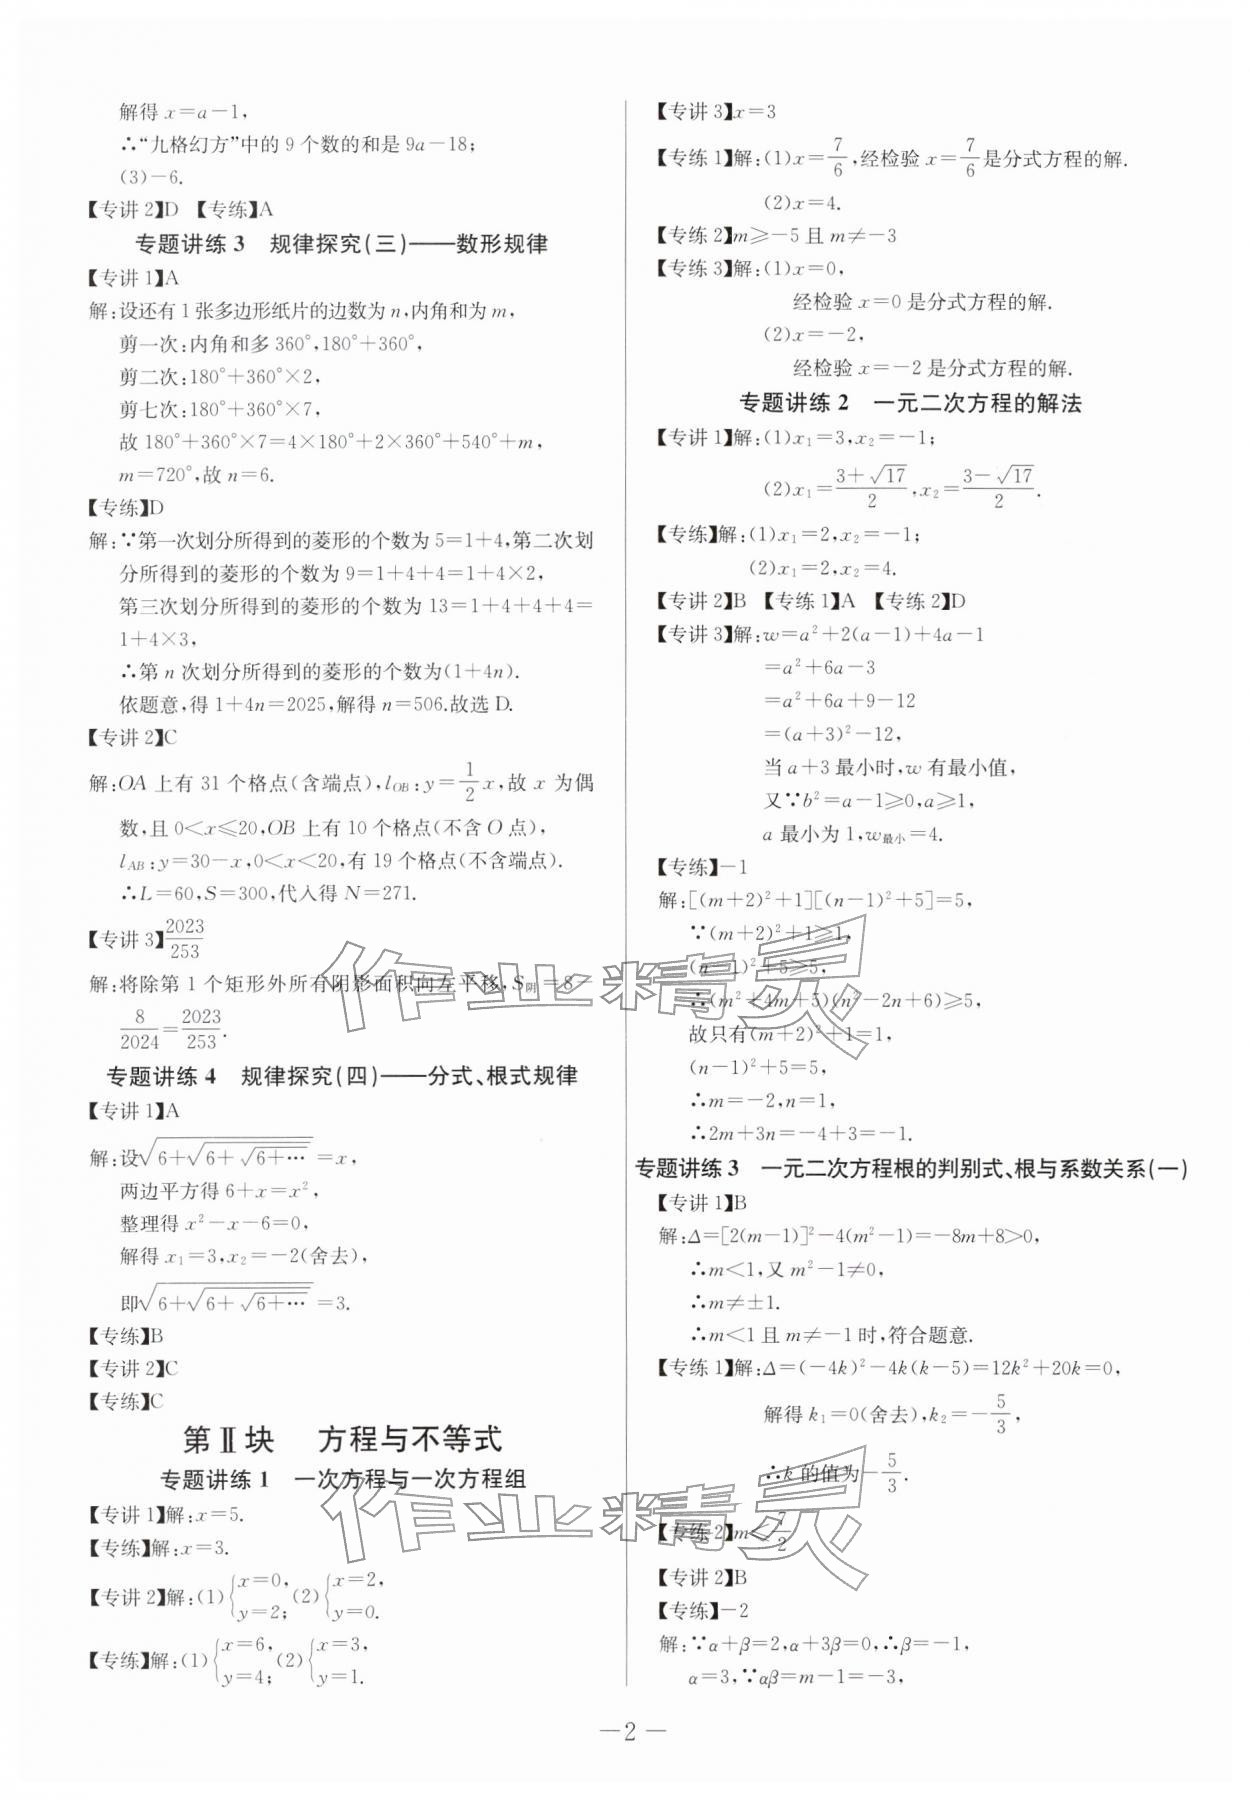 解得 x=a-1,
∴“九格幻方”中的 9 个数的和是 9a-18;
(3)-6.
【专讲 2】D 【专练】A
专题讲练 3 规律探究(三)——数形规律
【专讲 1】A
解:设还有 1 张多边形纸片的边数为 n,内角和为 m,
剪一次:内角和多 360°,180°+360°,
剪二次:180°+360°×2,
剪七次:180°+360°×7,
故 180°+360°×7=4×180°+2×360°+540°+m,
m=720°,故 n=6.
【专练】D
解:∵第一次划分所得到的菱形的个数为 5=1+4,第二次划
分所得到的菱形的个数为 9=1+4+4=1+4×2,
第三次划分所得到的菱形的个数为 13=1+4+4+4=
1+4×3,
∴第 n 次划分所得到的菱形的个数为(1+4n).
依题意,得 1+4n=2025,解得 n=506.故选 D.
【专讲 2】C
解:OA 上有 31 个格点(含端点),l_OB:y=1/2 x,故 x 为偶
数,且 0<x≤20,OB 上有 10 个格点(不含 O 点),
l_AB:y=30-x,0<x<20,有 19 个格点(不含端点).
∴L=60,S=300,代入得 N=271.
【专讲 3】2023/253
解:将除第 1 个矩形外所有阴影面积向左平移,S阴=8-
8/2024=2023/253.
专题讲练 4 规律探究(四)——分式、根式规律
【专讲 1】A
解:设√(6+√(6+√(6+⋯)))=x,
两边平方得 6+x=x²,
整理得 x²-x-6=0,
解得 x₁=3,x₂=-2(舍去),
即√(6+√(6+√(6+⋯)))=3.
【专练】B
【专讲 2】C
【专练】C
第Ⅱ块 方程与不等式
专题讲练 1 一次方程与一次方程组
【专讲 1】解:x=5.
【专练】解:x=3.
【专讲 2】解:(1){x=0, y=2; (2){x=2, y=0.
【专练】解:(1){x=6, y=4; (2){x=3, y=1.
【专讲 3】x=3
【专练 1】解:(1)x=7/6,经检验 x=7/6是分式方程的解.
(2)x=4.
【专练 2】m≥-5 且 m≠-3
【专练 3】解:(1)x=0,
经检验 x=0 是分式方程的解.
(2)x=-2,
经检验 x=-2 是分式方程的解.
专题讲练 2 一元二次方程的解法
【专讲 1】解:(1)x₁=3,x₂=-1;
(2)x₁=(3+√17)/2,x₂=(3-√17)/2.
【专练】解:(1)x₁=2,x₂=-1;
(2)x₁=2,x₂=4.
【专讲 2】B 【专练 1】A 【专练 2】D
【专讲 3】解:w=a²+2(a-1)+4a-1
=a²+6a-3
=a²+6a+9-12
=(a+3)²-12,
当 a+3 最小时,w 有最小值,
又∵b²=a-1≥0,a≥1,
a 最小为 1,w最小=4.
【专练】-1
解:[(m+2)²+1][(n-1)²+5]=5,
∵(m+2)²+1≥1,
(n-1)²+5≥5,
∴(m²+4m+5)(n²-2n+6)≥5,
故只有(m+2)²+1=1,
(n-1)²+5=5,
∴m=-2,n=1,
∴2m+3n=-4+3=-1.
专题讲练 3 一元二次方程根的判别式、根与系数关系(一)
【专讲 1】B
解:Δ=[2(m-1)]²-4(m²-1)=-8m+8>0,
∴m<1,又 m²-1≠0,
∴m≠±1.
∴m<1 且 m≠-1 时,符合题意.
【专练 1】解:Δ=(-4k)²-4k(k-5)=12k²+20k=0,
解得 k₁=0(舍去),k₂=-5/3,
∴k 的值为-5/3.
【专练 2】m≤ /2
【专讲 2】B
【专练】-2
解:∵α+β=2,α+3β=0,∴β=-1,
α=3,∵αβ=m-1=-3,
—2—
作业精灵
作业精灵